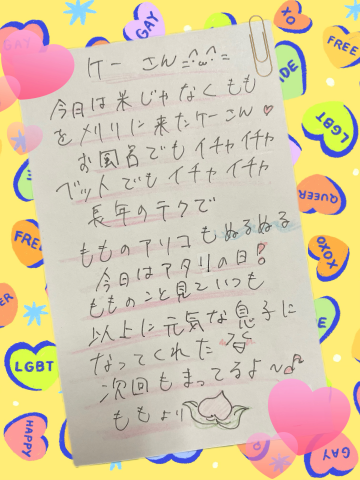 ケーさん
今日は米じゃなくもも
をメリリに来たケーさん♥
お風呂でもイチャイチャ
ベットでもイチャイチャ
長年のテクで
もものアソコもぬるぬる
今日はアタリの日!
もものこと見ていつも
以上に元気な息子に
なってくれた
次回もまってるよ〜♪
ももより
GAY
GAY
XO
FREE
LGBT
QUEER
XOXO
FREE
LGBT
HAPPY
GAY